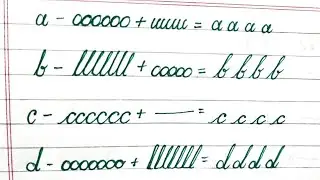 a - oooooo + uuuu = a a a a
b - lllllll + ooooo = b b b b
c - cccccc + — = c c c c
d - ooooooo + lllllll = d d d d